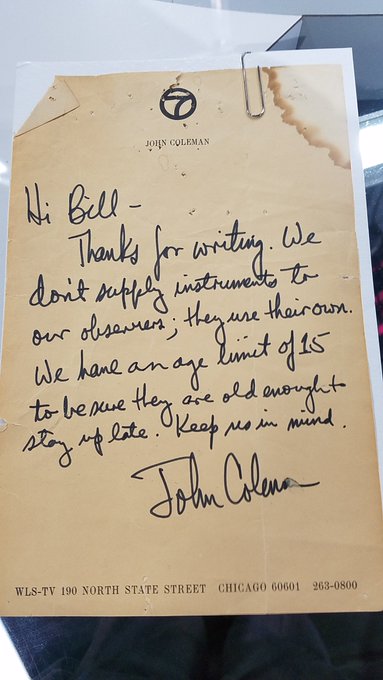 7
JOHN COLEMAN
Hi Bill -
Thanks for writing. We
don't supply instruments to
our observers; they use their own.
We have an age limit of 15
to be sure they are old enough to
stay up late. Keep us in mind.
John Coleman
WLS-TV 190 NORTH STATE STREET CHICAGO 60601 263-0800